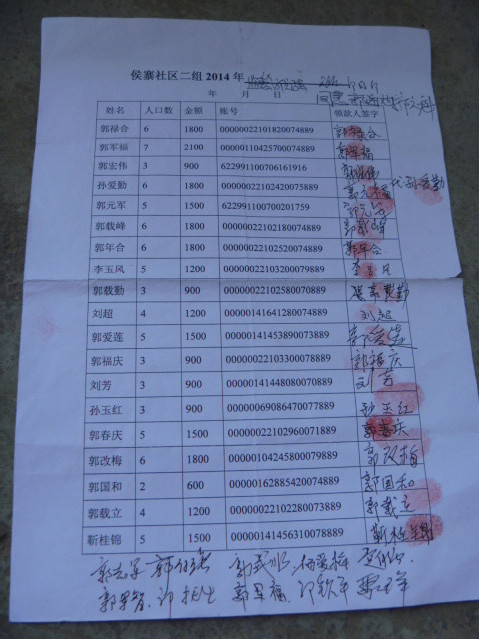 侯寨社区二组2014年
年 月 日
姓名 人口数 金额 账号 领款人签字
郭禄合 6 1800 00000022101820074889 郭禄合
郭军福 7 2100 00000110425070074889 郭军福
郭宏伟 3 900 622991100706161916 郭宏伟
孙爱勤 6 1800 00000022102420075889 郭元军代孙爱勤
郭元军 5 1500 622991100700201759 郭元军
郭载峰 6 1800 00000022102180074889 郭载峰
郭年合 6 1800 00000022102520074889 郭年合
李玉风 5 1200 00000022103200079889 李玉风
郭载勤 3 900 00000022102580070889 郭载勤
刘超 4 1200 00000141641280074889 刘超
郭爱莲 5 1500 00000141453890073889 郭爱莲
郭福庆 3 900 00000022103300078889 郭福庆
刘芳 3 900 00000141448080070889 刘芳
孙玉红 3 900 00000069086470077889 孙玉红
郭春庆 5 1500 00000022102960071889 郭春庆
郭改梅 6 1800 00000104245800079889 郭改梅
郭国和 2 600 00000162885420074889 郭国和
郭载立 4 1200 00000022102280073889 郭载立
靳桂锦 5 1500 00000141456310078889 靳桂锦